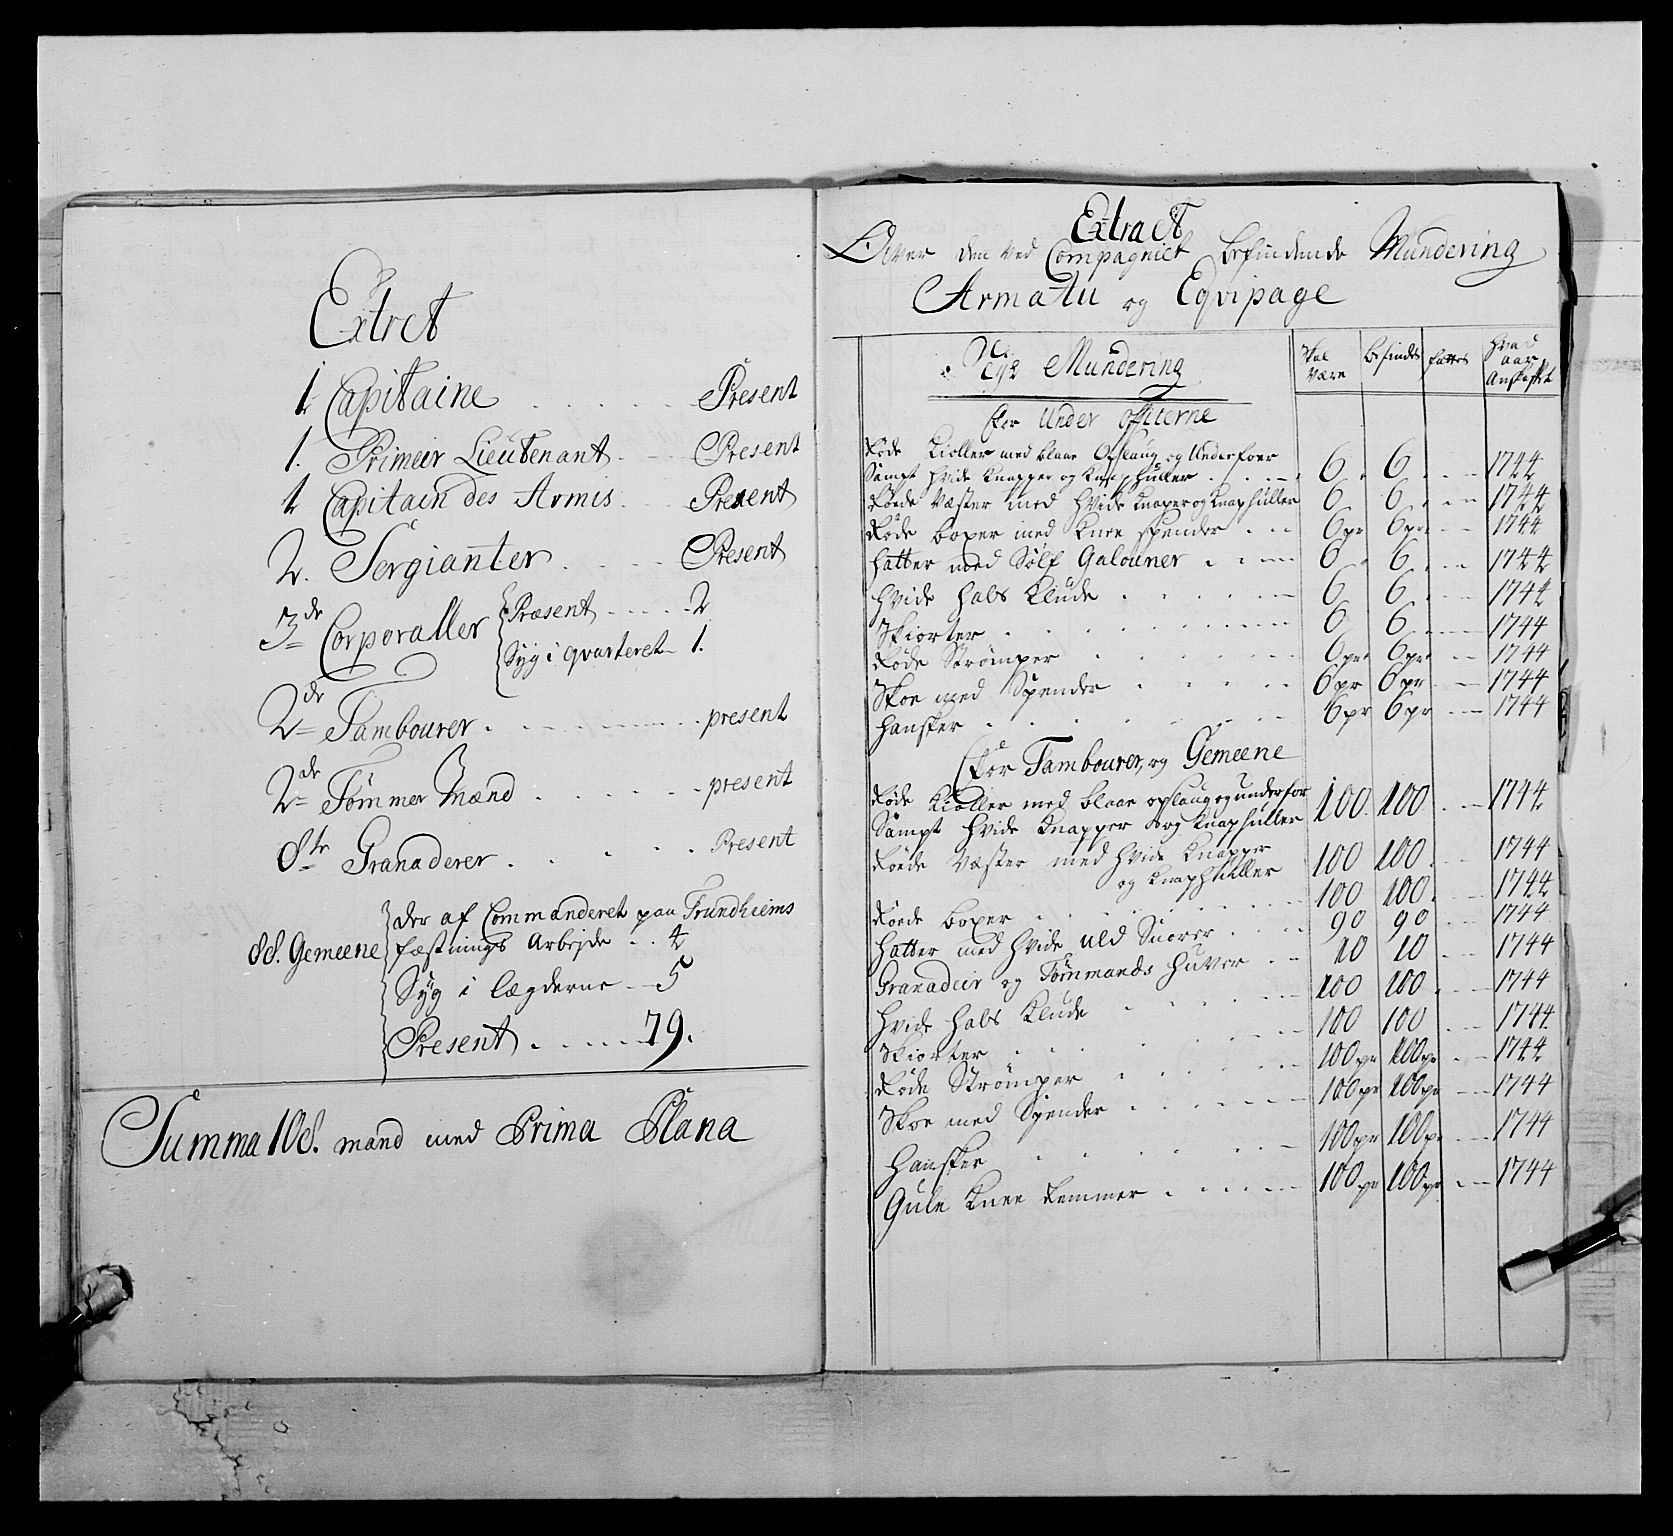 Extret
1 Capitaine . . . . . . Present
1. Primeir Lieutenant . . Present
1 Capitain des Armis . . Present
2. Sergianter . . . . Present
3de Corporaller Præsent . . . . . 2
Syg i qvarteret - 1.
2de Tambourer . . . . . . . present
2de Tømmer Mænd . . . . . . present
8te Granaderer . . . . . Present
Der af Commanderet paa Trundhiems
88. Gemeene fæstnings Arbejde . . 4
Syg i Lægderne - - 5
Present . . . . . 79.
Summa 108. mand med Prima Plana
Extract
Over den ved Compagniet befindende Mundering
Armatu og Eqvipage
Mundering
Skal Være
befindes
fattes
hvad aar Anskaffet
For Under Officerne
Røde Kioller med blaae Opslaug og Underfoer
Sampt hvide Knapper og Knaphuller . . . . 6 . 6 . . . 1744
Røde Væster med hvide Knaper og Knaphuller 6 6 . . . 1744
Røde boxer med Knee spender . . . 6pr 6pr . . 1744
hatter med Sølf Galouner . . . . 6 . 6 . . . 1744
hvide hals Klude . . . . . . 6 6 . . . 1744
Skiorter . . . . . . . . 6 6 . . . 1744
Røde Strømper . . . . . . 6pr 6pr . . 1744
Skoe med Spender . . . . . 6pr 6pr . . 1744
hansker . . . . . . . 6pr 6pr . . 1744
For Tambourer, og Gemeene
Røde Kioller med blaae opslaug og underfor
Sampt hvide Knapper og Knaphuller 100. 100 . . 1744
Røede Væster med hvide Knapper 100 100 . . 1744
og Knaphuller
Røede boxer . . . . . . . 100 100 . . 1744
hatter med hvide uld Snorer . . . . 90 90 . . 1744
Granadeir og Tømmands huver . . 10 10 . . 1744
hvide hals Klude . . . . 100 100 . . 1744
Skiorter . . . . . . 100 100 . . 1744
Røde Strømper . . . . . 100pr 100pr . . 1744
Skoe med Spender . . . . . . 100pr 100pr . . 1744
Hansker . . . . . . 100pr 100pr . . 1744
Gule Knee Remmer . . . . . . 100pr 100pr . . 1744